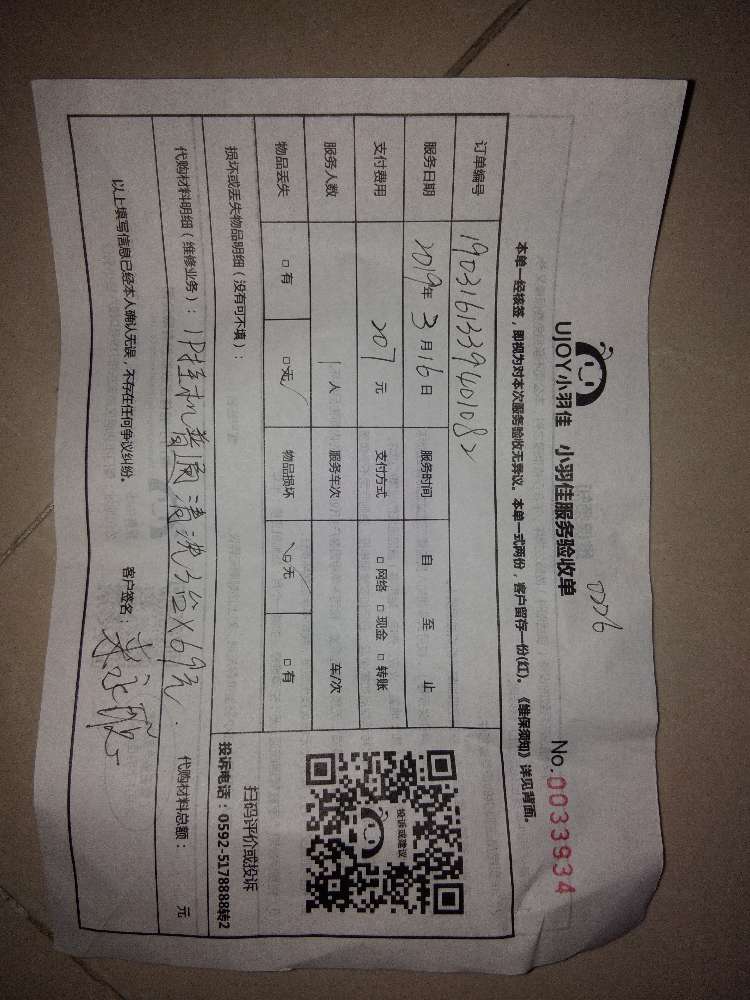 UJOY小羽佳 小羽佳服务验收单
0226
No.0033934
本单一经核签，即视为对本次服务验收无异议。本单一式两份，客户留存一份(红)。《维保须知》详见背面。
订单编号 1903161339401082
服务日期 2019年3月16日 服务时间 自 至 止
支付费用 207元 支付方式 □网络 □现金 □转账
服务人数 1人 服务车次 车/次
物品丢失 □有 □无✓ 物品损坏 □无✓ □有
损坏或丢失物品明细（没有可不填）：
投诉或建议
扫码评价或投诉
投诉电话：0592-5178888转2
代购材料明细（维修业务）：1P挂机普通清洗3台×69元. 代购材料总额： 元
以上填写信息已经本人确认无误，不存在任何争议纠纷。 客户签名：